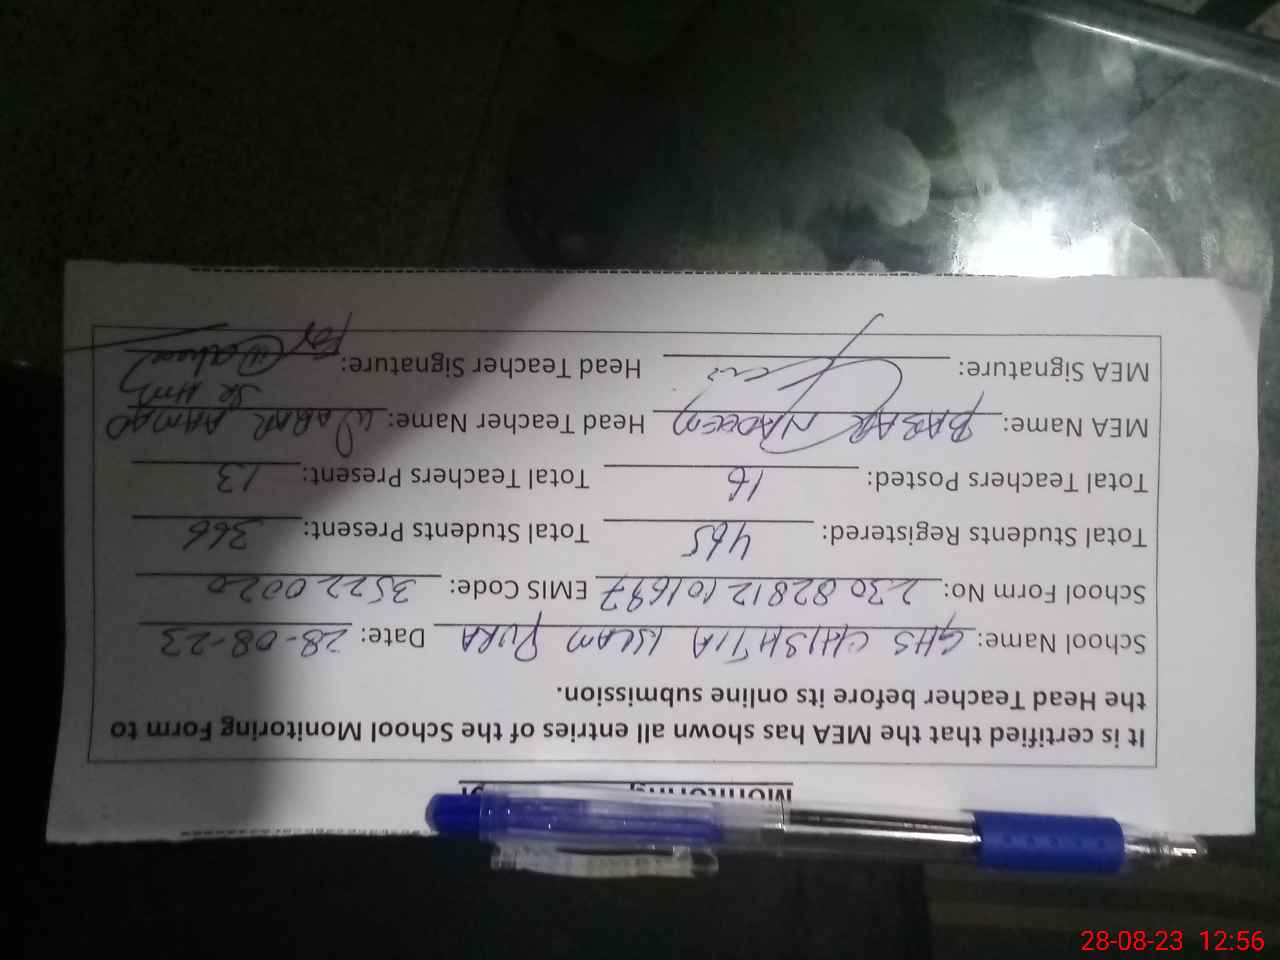 It is certified that the MEA has shown all entries of the School Monitoring Form to
the Head Teacher before its online submission.
School Name: GHS CHISHTIA ISLAM PURA Date: 28-08-23
School Form No: 230 828 12 101697 EMIS Code: 35220020
Total Students Registered: 465 Total Students Present: 366
Total Teachers Posted: 16 Total Teachers Present: 13
MEA Name: BABAR NADEEM Head Teacher Name: WAQAR AHMAD
MEA Signature: Head Teacher Signature:
28-08-23 12:56